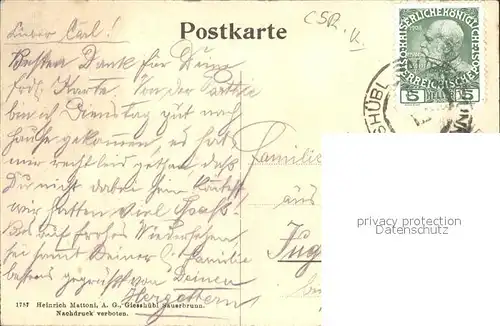 Lieber Carl!
Postkarte
C S R. K.
Besten Dank für Deine
frdl. Karte. Von der Partie
bin ich Dienstag gut nach
Hause gekommen, es hat
mir recht leid gethan, daß
Du nicht dabei sein
wir hatten viel Spaß!
Also auf frohes Wiedersehen
sei samt Deiner l. Familie
bestens gegrüßt von Deinen
Familie
aus
privacy protection
Datenschutz
1908
HELLER
5 5
SHÜBL
1787 Heinrich Mattoni, A. G., Giesshübl Sauerbrunn.
Nachdruck verboten.